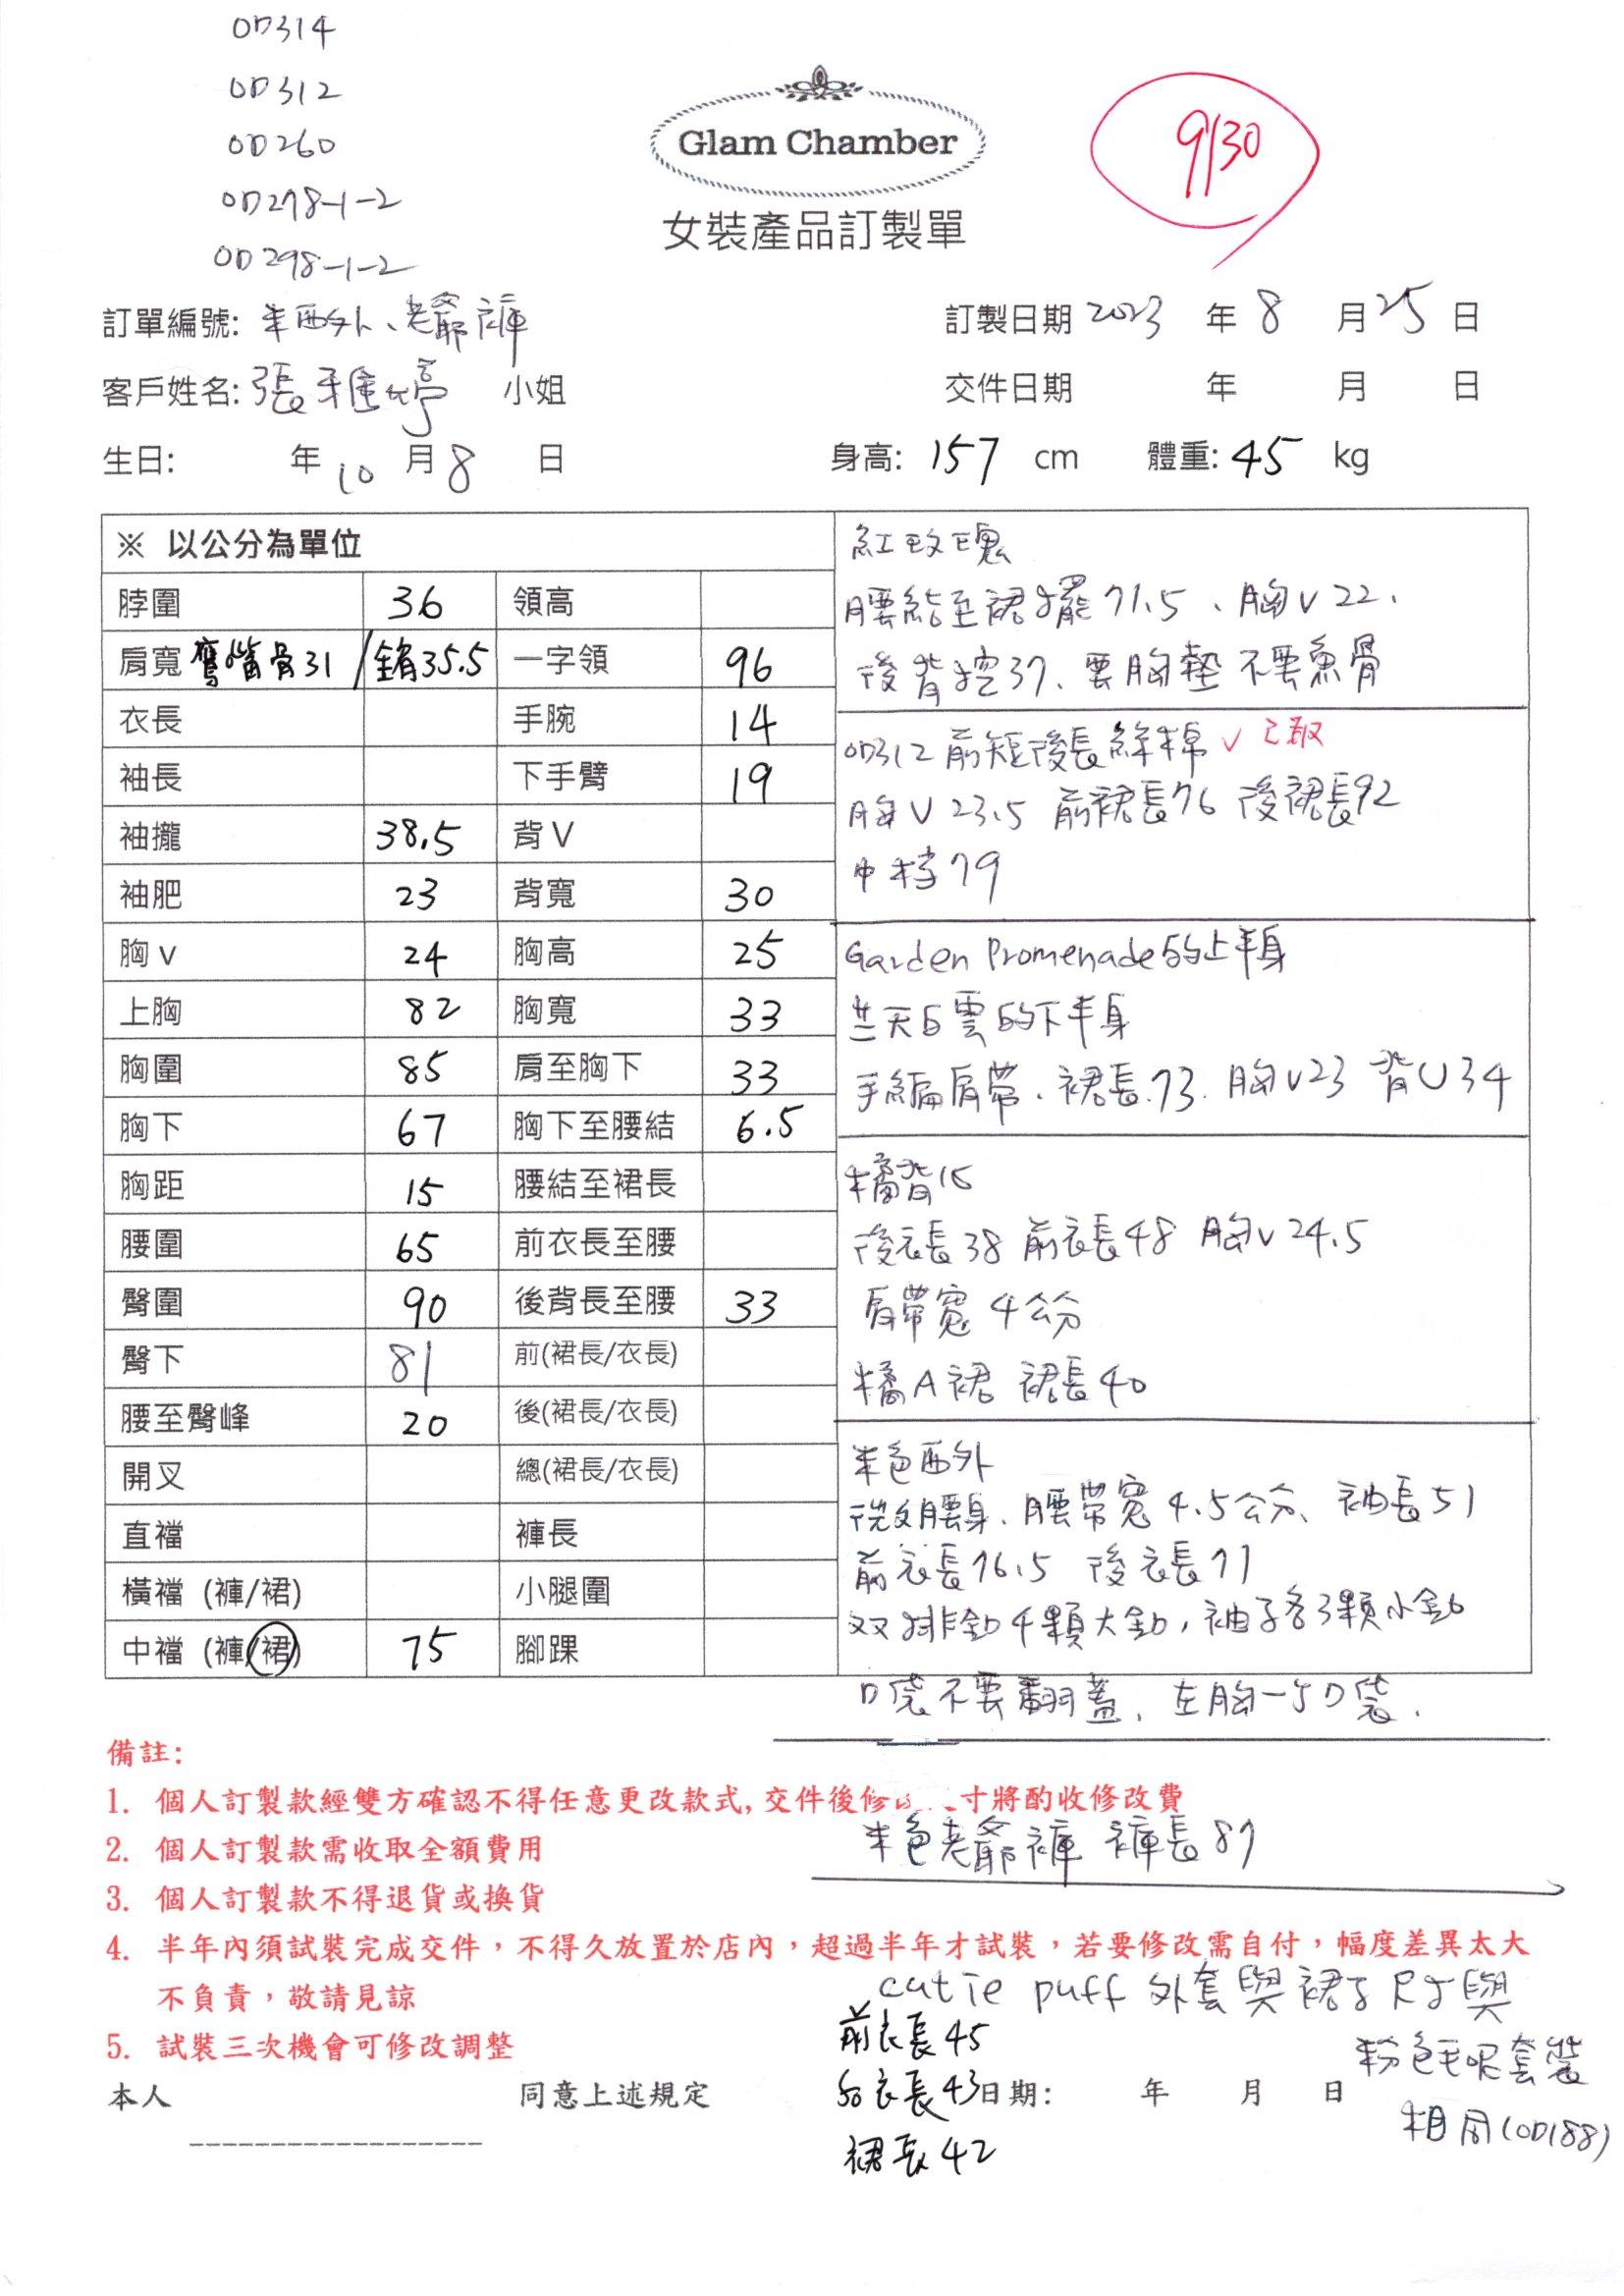 OD314
OD312
OD260
OD298-1-2
OD298-1-2
Glam Chamber
9/30
女裝產品訂製單
訂單編號: 米西外、老爺褲
訂製日期 2023 年 8 月 25 日
客戶姓名: 張雅婷 小姐
交件日期 年 月 日
生日: 年 10 月 8 日
身高: 157 cm 體重: 45 kg
※ 以公分為單位
脖圍 36 領高
肩寬 鷹嘴骨31/銷35.5 一字領 96
衣長 手腕 14
袖長 下手臂 19
袖攏 38.5 背V
袖肥 23 背寬 30
胸v 24 胸高 25
上胸 82 胸寬 33
胸圍 85 肩至胸下 33
胸下 67 胸下至腰結 6.5
胸距 15 腰結至裙長
腰圍 65 前衣長至腰
臀圍 90 後背長至腰 33
臀下 81 前(裙長/衣長)
腰至臀峰 20 後(裙長/衣長)
開叉 總(裙長/衣長)
直襠 褲長
橫襠 (褲/裙) 小腿圍
中襠 (褲/裙) 75 腳踝
紅玫瑰
腰結至裙擺71.5、胸v22、
後背挖37、要胸墊 不要魚骨
OD312 前短後長絲棉 ✓已取
胸V 23.5 前裙長76 後裙長92
中檔79
Garden Promenade的上半身
藍天白雲的下半身
手編肩帶、裙長73. 胸v23 背U34
橘背心
後衣長38 前衣長48 胸v24.5
肩帶寬 4公分
橘A裙 裙長40
米色西外
微腰身、腰帶寬4.5公分、袖長51
前衣長76.5 後衣長71
双排釦4顆大釦,袖子各3顆小釦
口袋不要翻蓋、左胸一字口袋.
備註:
1. 個人訂製款經雙方確認不得任意更改款式,交件後修寸將酌收修改費
米色老爺褲 褲長87
2. 個人訂製款需收取全額費用
3. 個人訂製款不得退貨或換貨
4. 半年內須試裝完成交件，不得久放置於店內，超過半年才試裝，若要修改需自付，幅度差異太大
不負責，敬請見諒
cutie puff 外套與裙子尺寸與
粉色毛呢套裝
相同(OD188)
前衣長45
後衣長43
裙長42
5. 試裝三次機會可修改調整
本人 同意上述規定 日期: 年 月 日